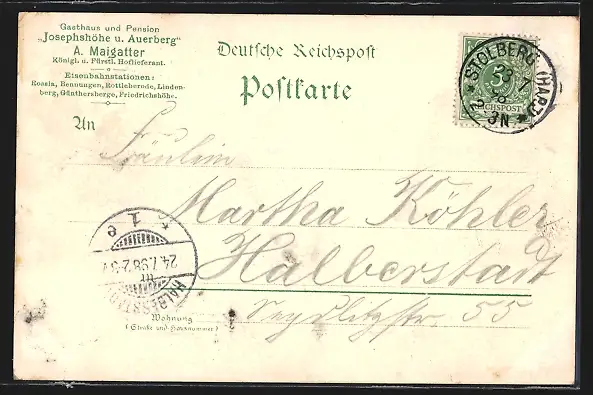 Gasthaus und Pension
„Josephshöhe u. Auerberg“
A. Maigatter
Königl. u. Fürstl. Hoflieferant.
Eisenbahnstationen:
Rossla, Bennungen, Rottleberode, Linden-
berg, Günthersberge, Friedrichshöhe.
Deutsche Reichspost
Postkarte
STOLBERG (HARZ)
23 7
3N
5
REICHSPOST
An
Fräulein
Martha Köhler
Halberstadt
Seydlitzstr. 55
1 e
24.7.98.2-3
HALBERSTADT
Wohnung
(Straße und Hausnummer)